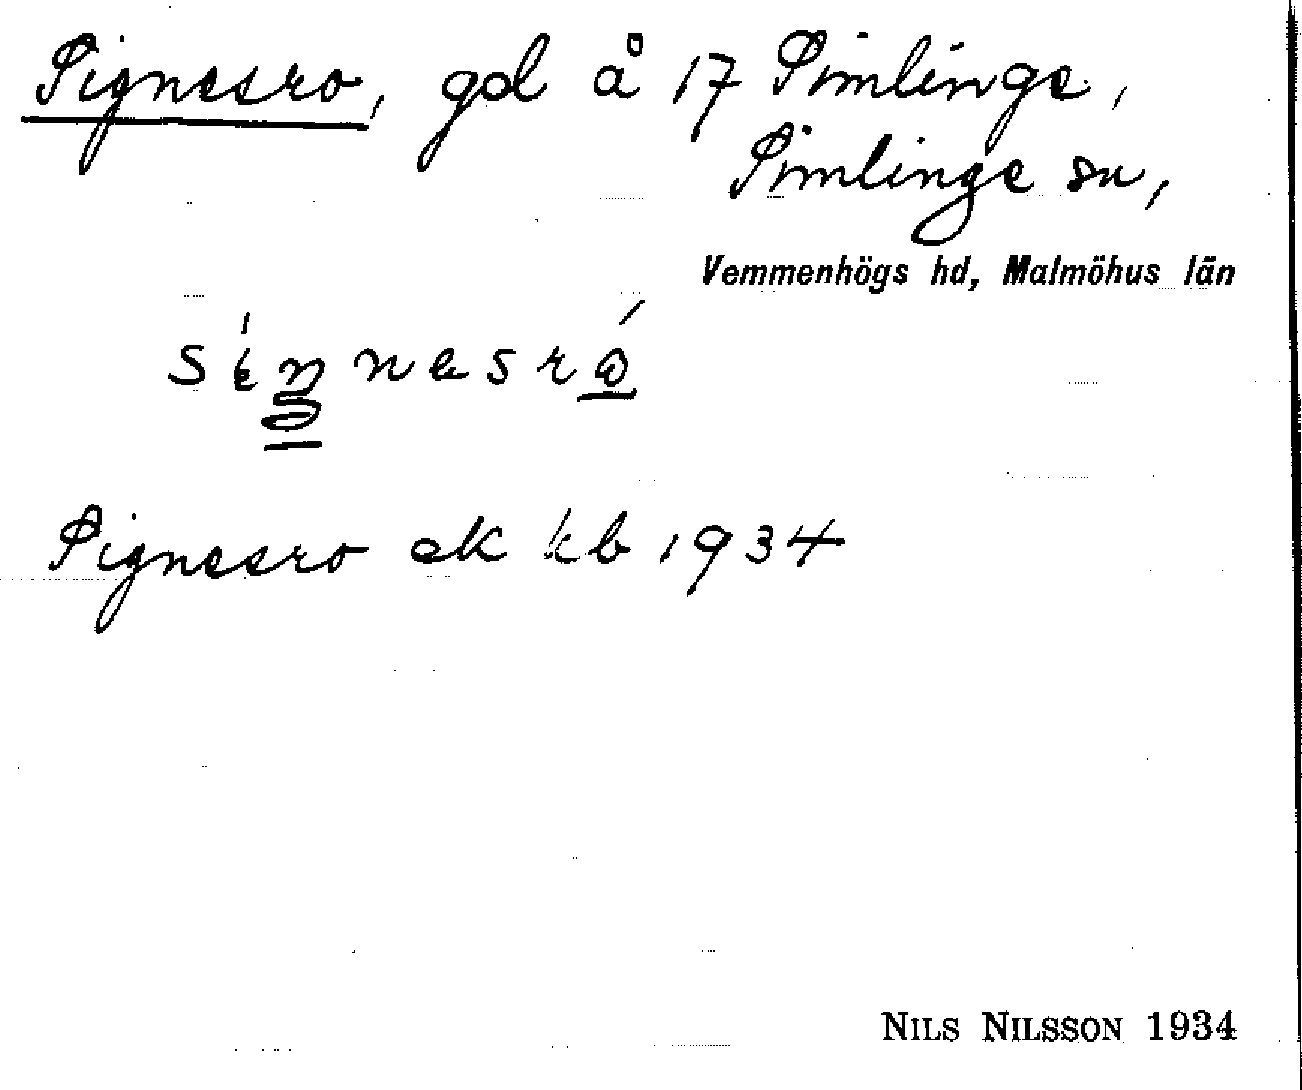 Signesro, gd å 17 Simlinge,
Simlinge sn,
Vemmenhögs hd, Malmöhus län
Signesro ek kb 1934
NILS NILSSON 1934